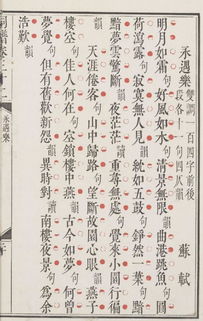 永遇樂 雙調一百四字前後段各十一句四仄韻 蘇軾
明月如霜句好風如水句清景無限韻曲港跳魚句圓
荷瀉露句寂寞無人見韻紞如五鼓句錚然一葉句黯
黯夢雲驚斷韻夜茫茫讀重尋無處句覺來小園行徧
韻 天涯倦客句山中歸路句望斷故園心眼韻燕子
樓空句佳人何在句空鎖樓中燕韻古今如夢句何曾
夢覺句但有舊歡新怨韻異時對讀南樓夜景句為余
浩歎韻
永遇樂